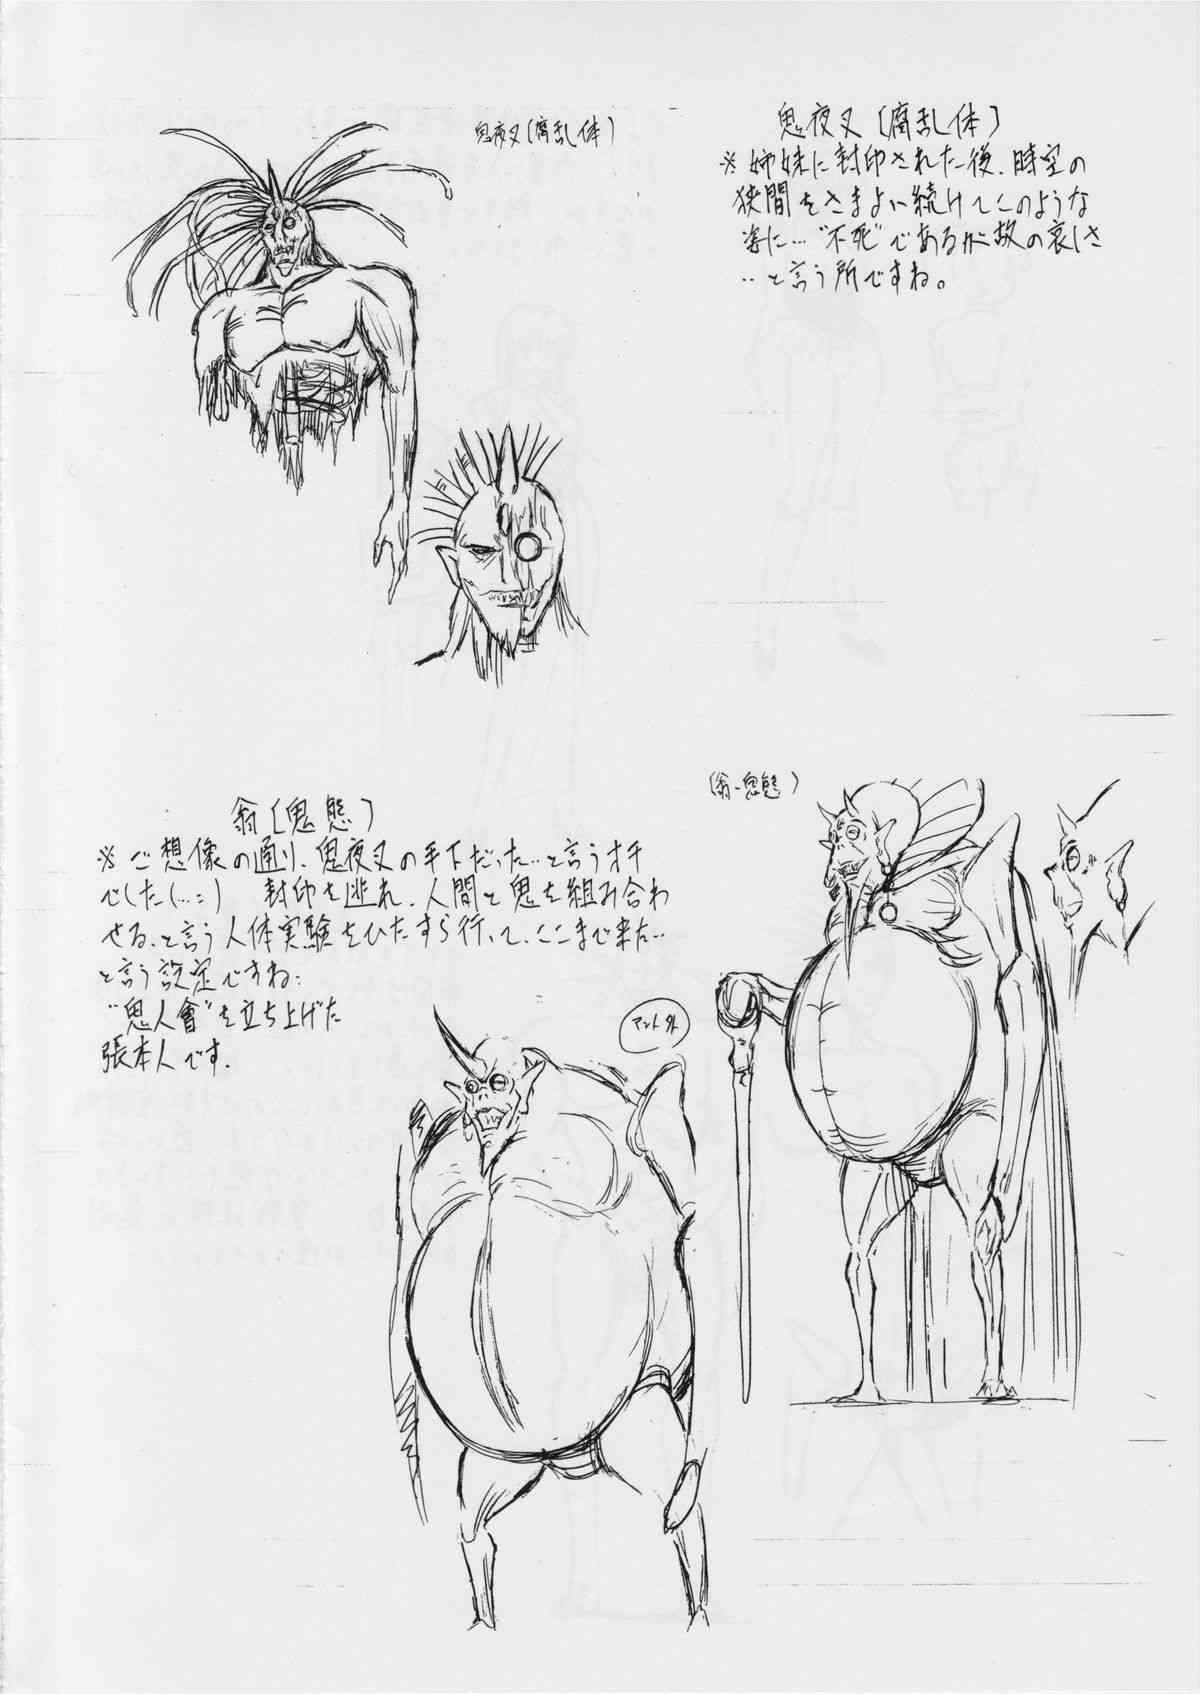 鬼夜叉(腐乱体)
鬼夜叉〔腐乱体〕
※姉妹に封印された後、時空の
狭間をさまよい続けてこのような
姿に…"不死"であるが故の哀しさ
…と言う所ですね。
(翁・鬼態)
翁〔鬼態〕
※ご想像の通り、鬼夜叉の手下だった…と言うオチ
でした(…;) 封印を逃れ、人間と鬼を組み合わ
せる、と言う人体実験をひたすら行って、ここまで来た…
と言う設定ですね。
"鬼人會"を立ち上げた
張本人です。
マント外